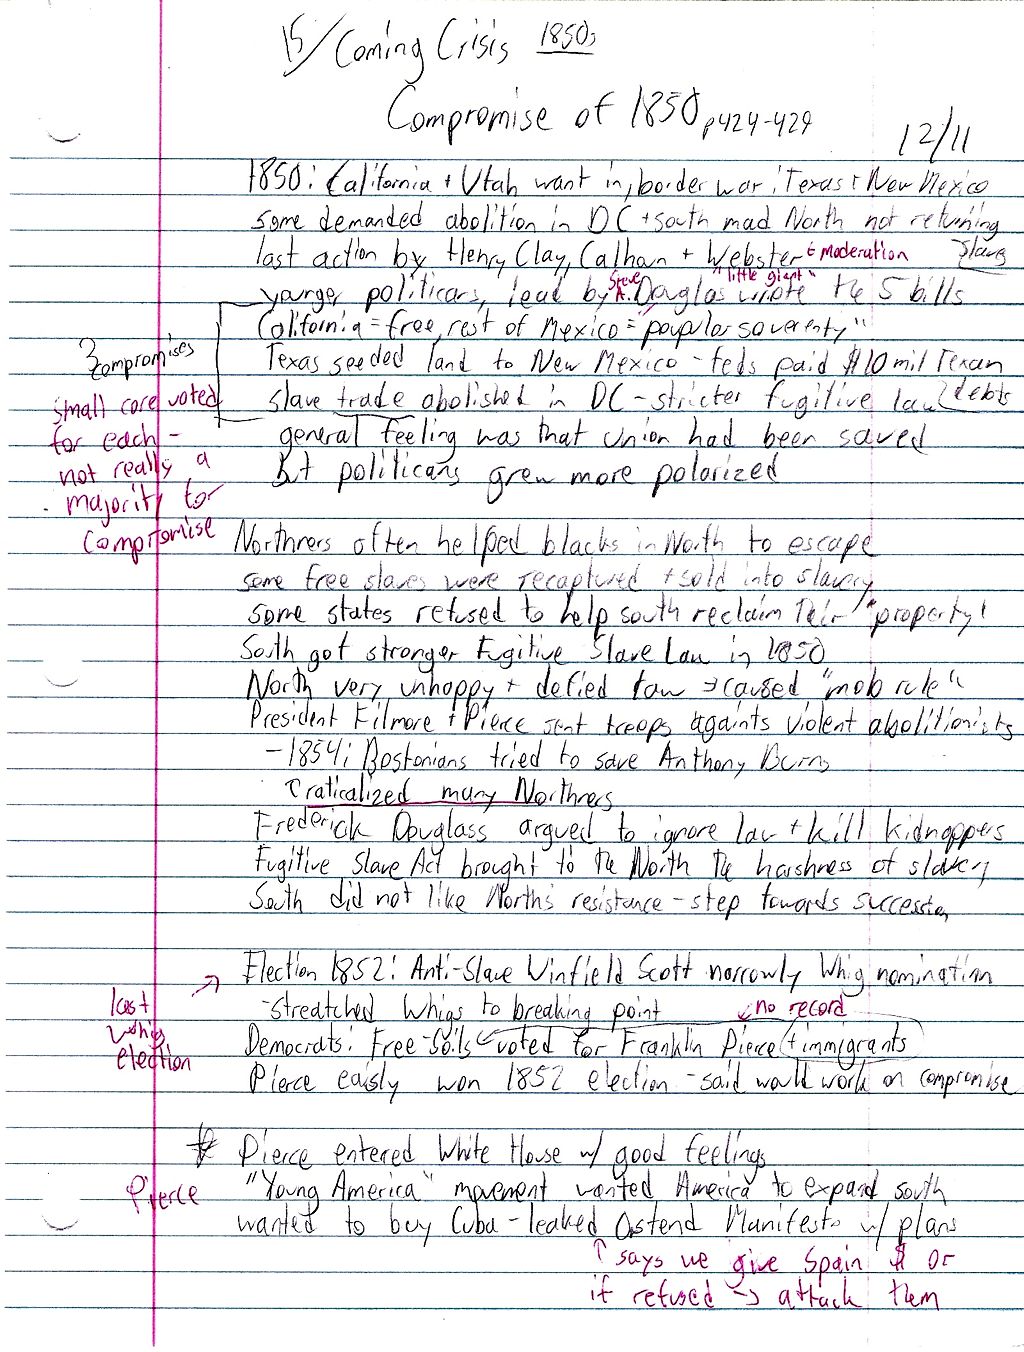 15/ Coming Crisis 1850s
Compromise of 1850 p424-429
12/11
1850: California + Utah want in, border war: Texas + New Mexico
some demanded abolition in DC + south mad North not returning
slaves
last action by Henry Clay, Calhoun + Webster ← moderation
"little giant"
Steve
yourger politicars, lead by A. Douglas wrote the 5 bills
California = free, rest of Mexico = popular soverenty"
3 compromises
Texas seeded land to New Mexico - feds paid $10 mil Texan
debts
small core voted
slave trade abolished in DC - stricter fugitive law
for each -
general feeling was that Union had been saved
not really a
but politicans grew more polarized
majority for
compromise
Northrers often helped blacks in North to escape
some free slaves were recaptured + sold into slavery
some states refused to help south reclaim their "property"
South got stronger Fugitive Slave Law in 1850
North very unhappy + defied law → caused "mob rule"
President Filmore + Pierce sent troops againts violent abolitionists
- 1854: Bostonians tried to save Anthony Burns
raticalized many Northrers
Frederick Douglass argued to ignore law + kill kidnappers
Fugitive Slave Act brought to the North the harshness of slavery
South did not like North's resistance - step towards succession
Election 1852: Anti-Slave Winfield Scott narrowly Whig nomination
last
whig
election
- streatched Whigs to breaking point
no record
Democrats: Free-Soils voted for Franklin Pierce + immigrants
Pierce eaisly won 1852 election - said would work on compromise
Pierce entered White House w/ good feelings
Pierce
"Young America" movement wanted America to expand south
wanted to buy Cuba - leaked Ostend Manifesto w/ plans
↑ says we give Spain $ or
if refused → attack them